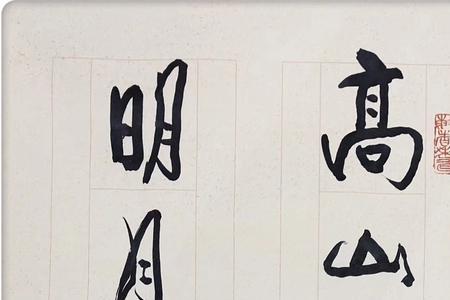 高山
明月